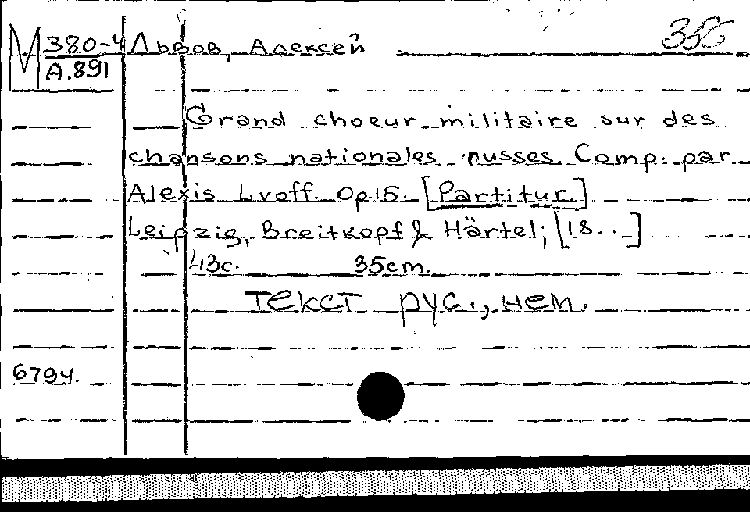 М 380-4 Львов, Алексей
А.891
Grand choeur militaire sur des
chansons nationales russes Comp. par
Alexis Lvoff Op 15. [Partitur.]
Leipzig, Breitkopf & Härtel; [18..]
43с. 35cm.
Текст рус., нем.